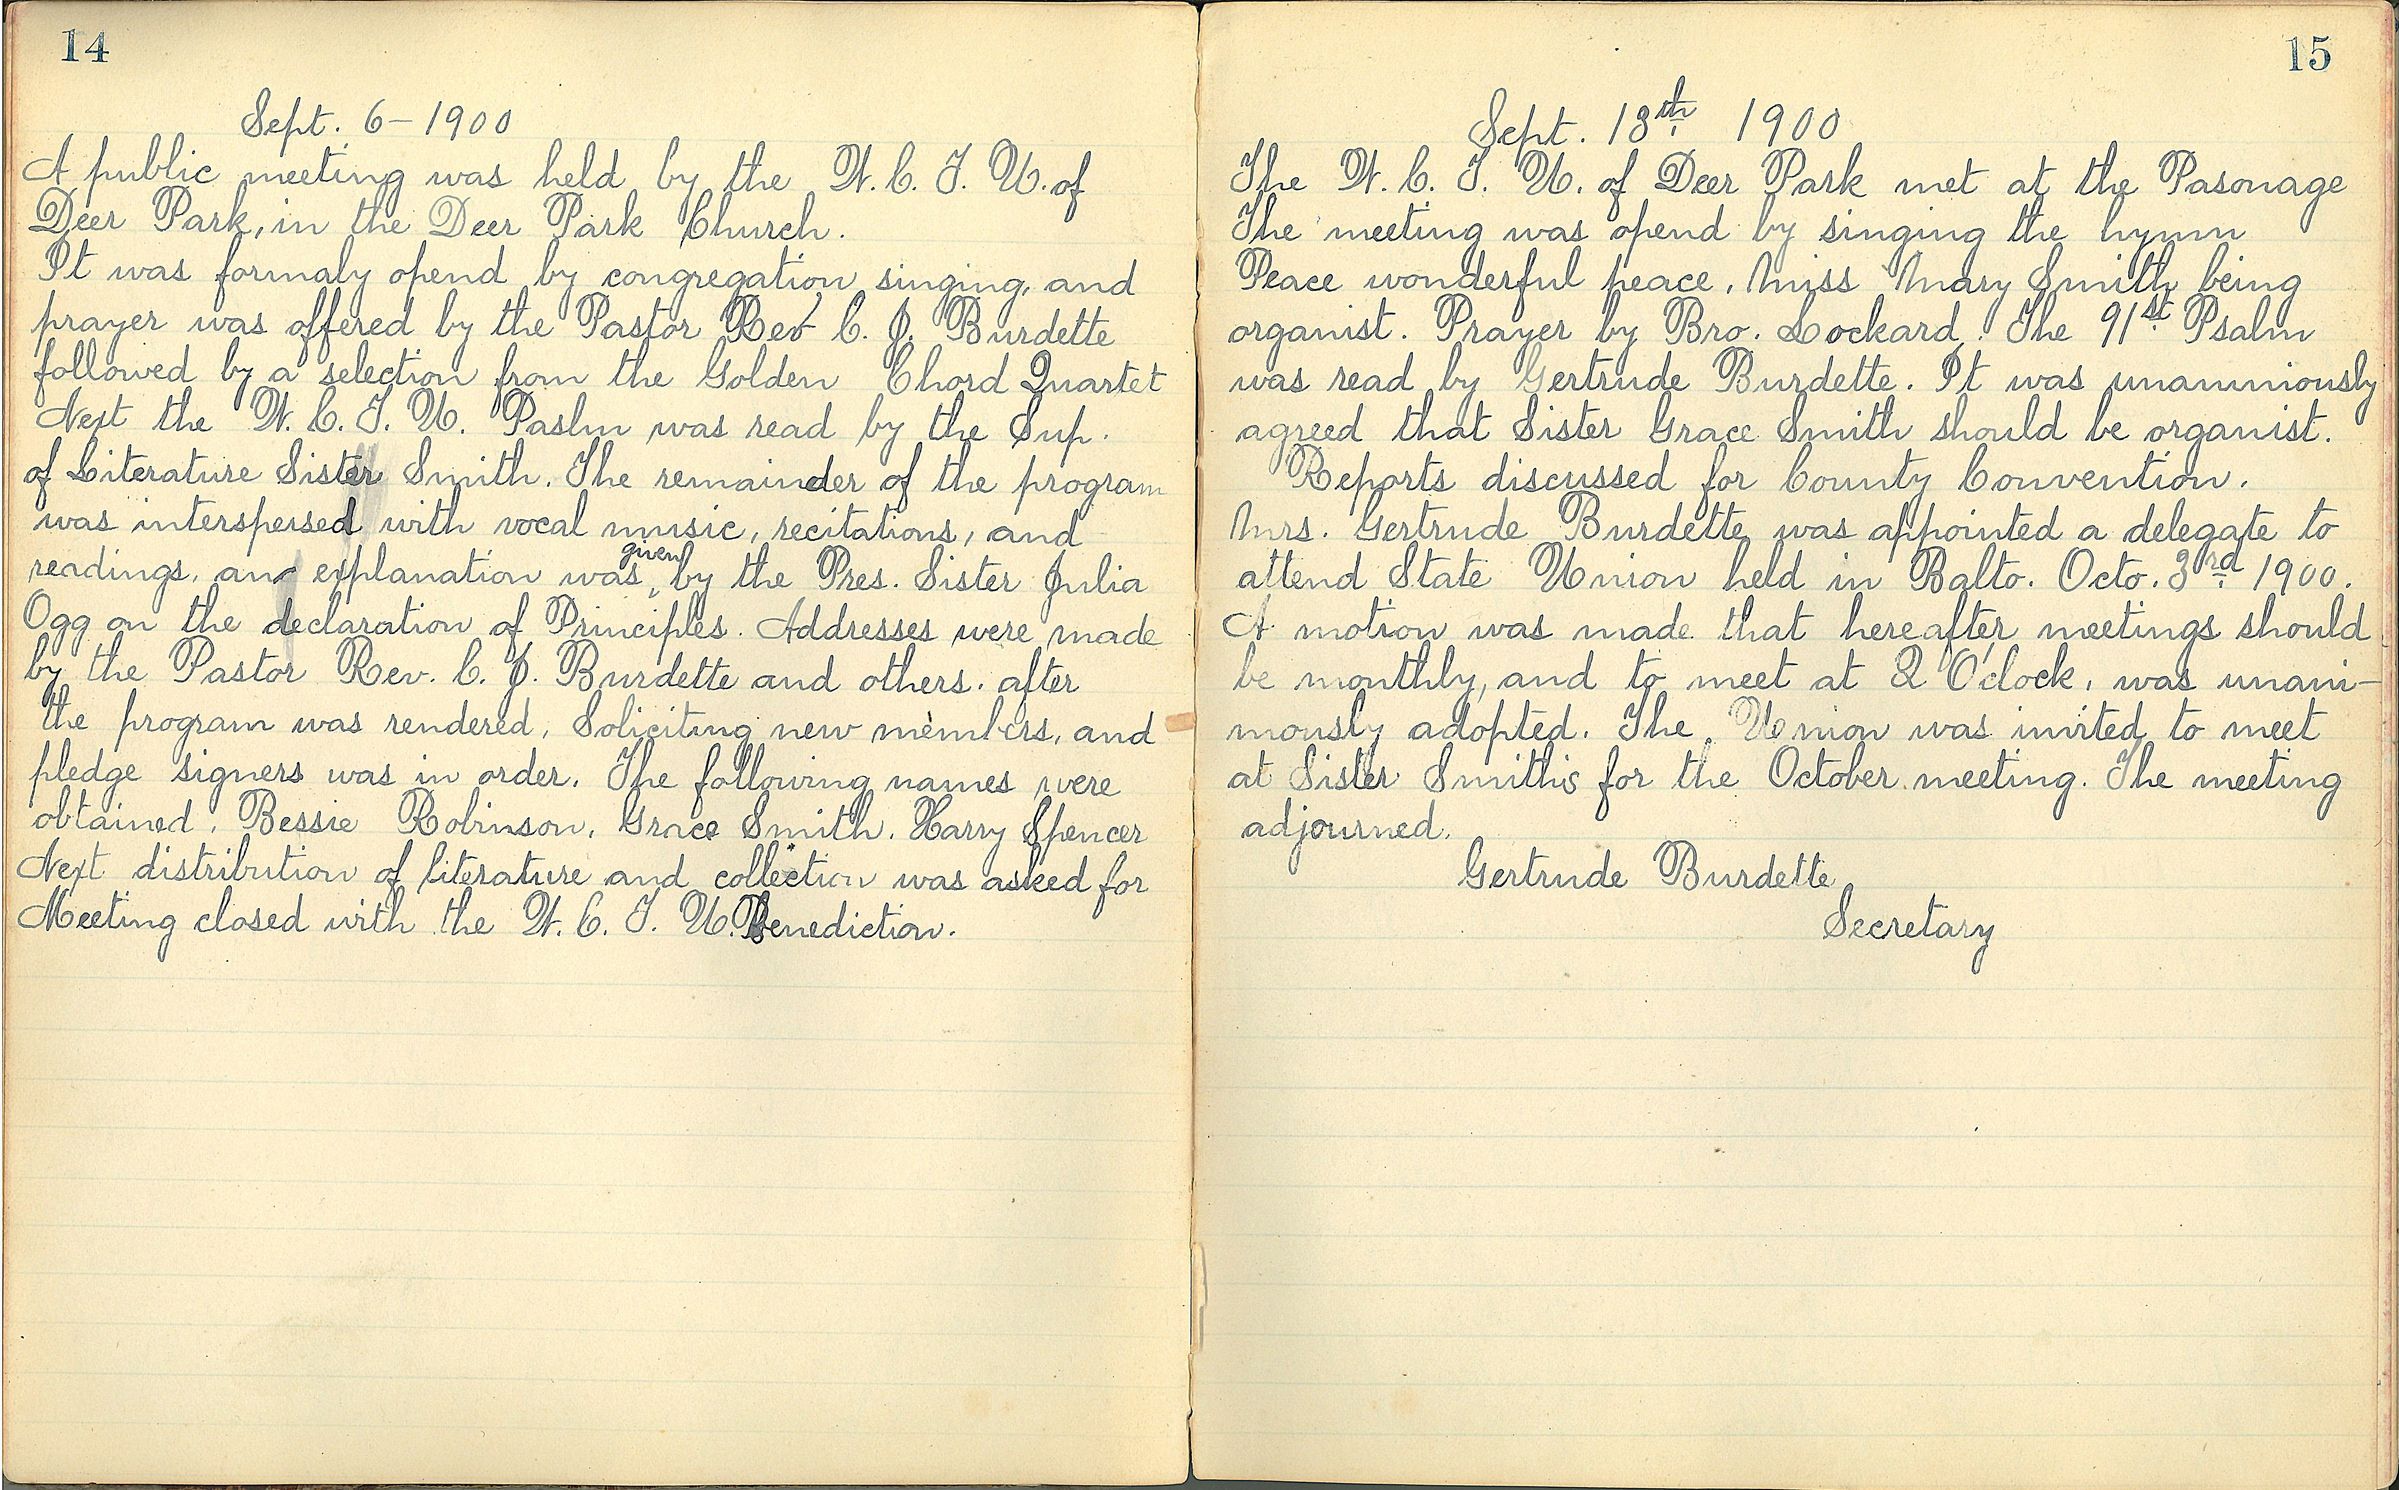 14
Sept. 6 – 1900
A public meeting was held by the W. C. T. U. of
Deer Park, in the Deer Park Church.
It was formaly opend by congregation singing, and
prayer was offered by the Pastor Rev C. J. Burdette
followed by a selection from the Golden Chord Quartet
Next the W. C. T. U. Paslm was read by the Sup.
of Literature Sister Smith. The remainder of the program
was interspersed with vocal music, recitations, and
readings, an explanation was given by the Pres. Sister Julia
Ogg on the declaration of Principles. Addresses were made
by the Pastor Rev. C. J. Burdette and others. after
the program was rendered, Soliciting new members, and
pledge signers was in order. The following names were
obtained. Bessie Robinson, Grace Smith. Harry Spencer
Next distribution of literature and collection was asked for
Meeting closed with the W. C. T. U. Benediction.
15
Sept. 13th 1900
The W. C. T. U. of Deer Park met at the Pasonage
The meeting was opend by singing the hymn
Peace wonderful peace, Miss Mary Smith being
organist. Prayer by Bro. Lockard. The 91st Psalm
was read by Gertrude Burdette. It was unanimiously
agreed that Sister Grace Smith should be organist.
Reports discussed for County Convention.
Mrs. Gertrude Burdette was appointed a delegate to
attend State Union held in Balto. Octo. 3rd 1900.
A motion was made that hereafter meetings should
be monthly, and to meet at 2 O'clock, was unani-
mously adopted. The Union was invited to meet
at Sister Smith's for the October meeting. The meeting
adjourned.
Gertrude Burdette
Secretary